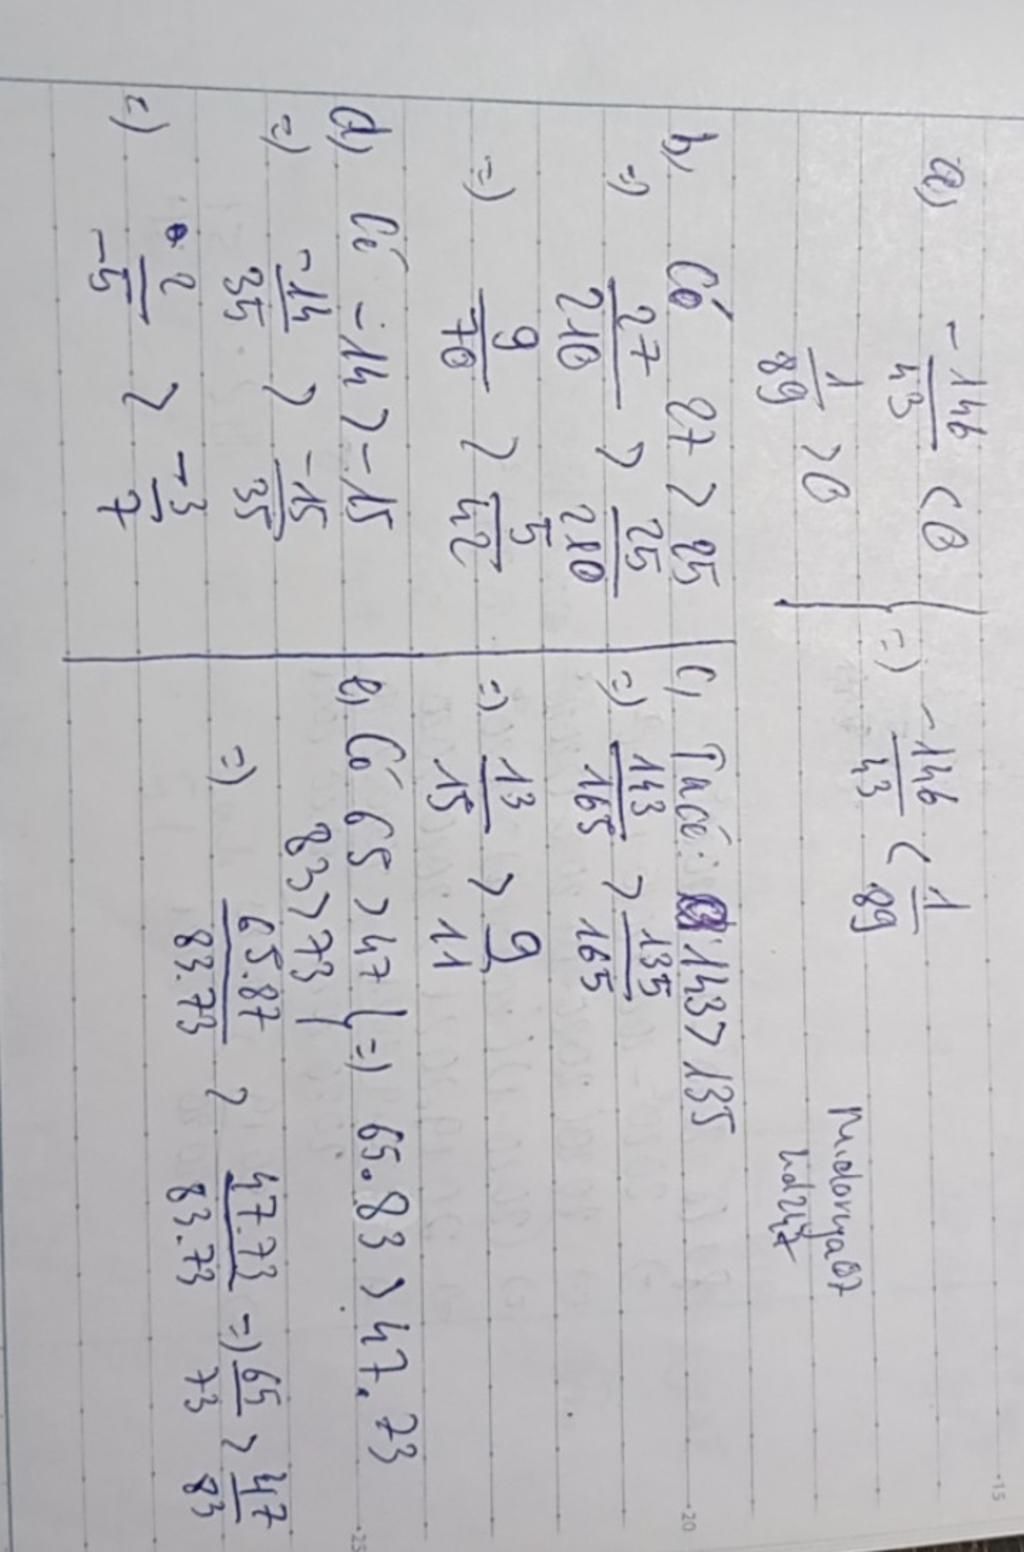 a, -146/43 < 0
1/89 > 0
=> -146/43 < 1/89
Midoriya07
hd247
b, Có 27 > 25
=> 27/210 > 25/210
=> 9/70 > 5/42
c, Ta có: 143 > 135
=> 143/165 > 135/165
=> 13/15 > 9/11
d, Có -14 > -15
=> -14/35 > -15/35
=> 2/-5 > -3/7
e, Có 65 > 47
83 > 73
=> 65.83 > 47.73
=> 65.87/83.73 > 47.73/83.73 => 65/73 > 47/83
15
20
25